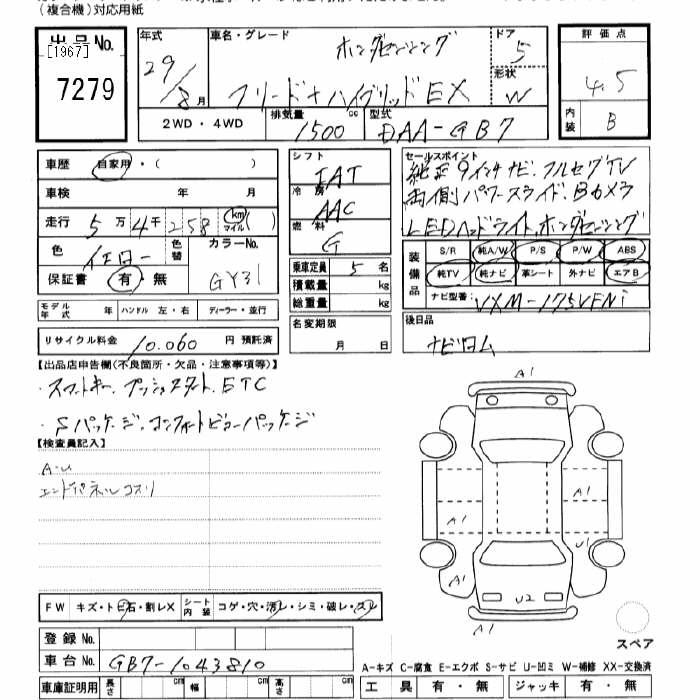 (複合機)対応用紙
出品No.
[1967]
7279
年式 29/8月
車名・グレード ホンダセンシング
フリード+ハイブリッドEX
ドア 5
形状 W
評価点 4.5
内装 B
2WD・4WD
排気量 1500 cc
型式 DAA-GB7
車歴 自家用・( )
車検 年 月
走行 5万4千258 km マイル ( )
色 イエロー 色替
カラーNo. GY31
保証書 有・無
シフト IAT
冷房 AAC
燃料 G
乗車定員 5 名
積載量 kg
総重量 kg
名変期限 月 日
セールスポイント
純正9インチナビ.フルセグTV
両側パワースライド.Bカメラ
LEDヘッドライト.ホンダセンシング
装備品 S/R 純A/W P/S P/W ABS
純TV 純ナビ 革シート 外ナビ エアB
ナビ型番: VXM-175VFNi
後日品
ナビロム
モデル年式 年 ハンドル 左・右 ディーラー・並行
リサイクル料金 10.060 円 預託済
【出品店申告欄(不良箇所・欠品・注意事項等)】
・スマートキー.プッシュスタート.ETC
・Sパッケージ.コンフォートビューパッケージ
【検査員記入】
A・U
エンドパネルコスリ
A1
A1
A1
U1
A1
U2
A1
スペア
FW キズ・トビ石・割レX シート内装 コゲ・穴・汚レ・シミ・破レ・スレ
登録No.
車台No. GB7-1043810
車庫証明用 長さ cm 幅 cm 高さ cm
A-キズ C-腐食 E-エクボ S-サビ U-凹ミ W-補修 XX-交換済
工具 有・無 ジャッキ 有・無